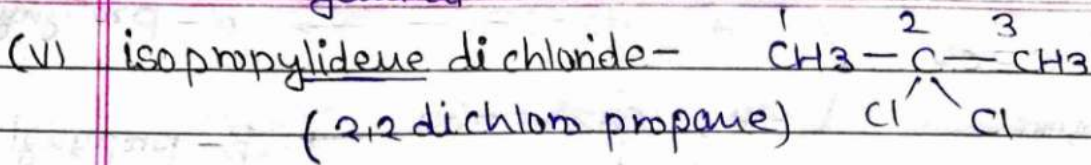 (V) isopropylidene di chloride- CH3-C-CH3
1 2 3
(2,2 dichloro propane) Cl Cl